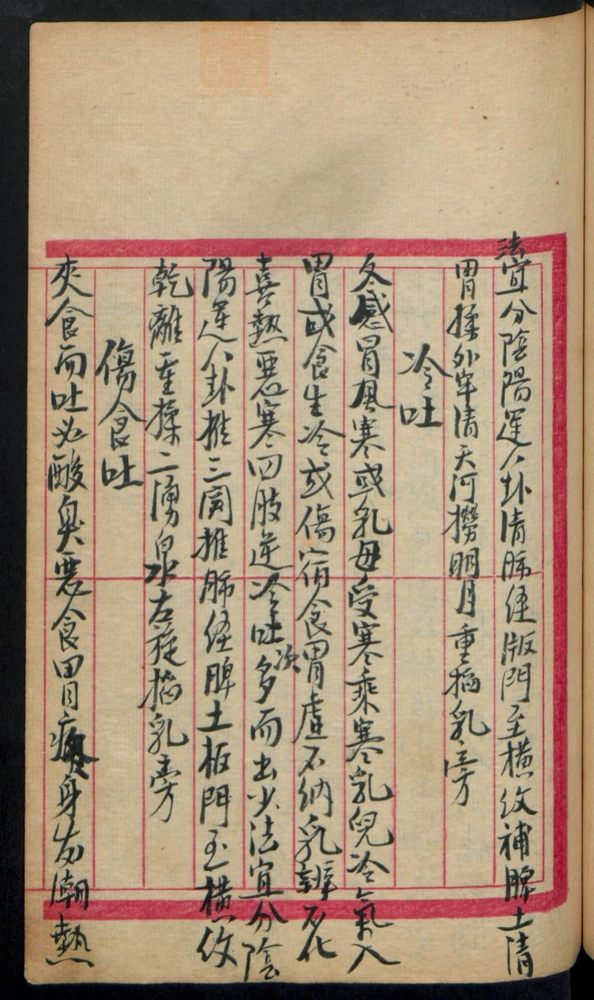 法宜分陰陽運八卦清肺經版門至橫紋補脾土清
胃揉外牢清天河撈明月重掐乳旁
冷吐
冬感冒風寒或乳母受寒乘寒乳兒冷氣入
胃或食生冷或傷宿食胃虛不納乳不化
喜熱惡寒四肢逆冷吐次多而出少法宜分陰
陽運八卦推三関推肺經脾土板門至橫紋
乾離重揉二湧泉左旋掐乳旁
傷食吐
夾食而吐必酸臭惡食胃疼身发潮熱